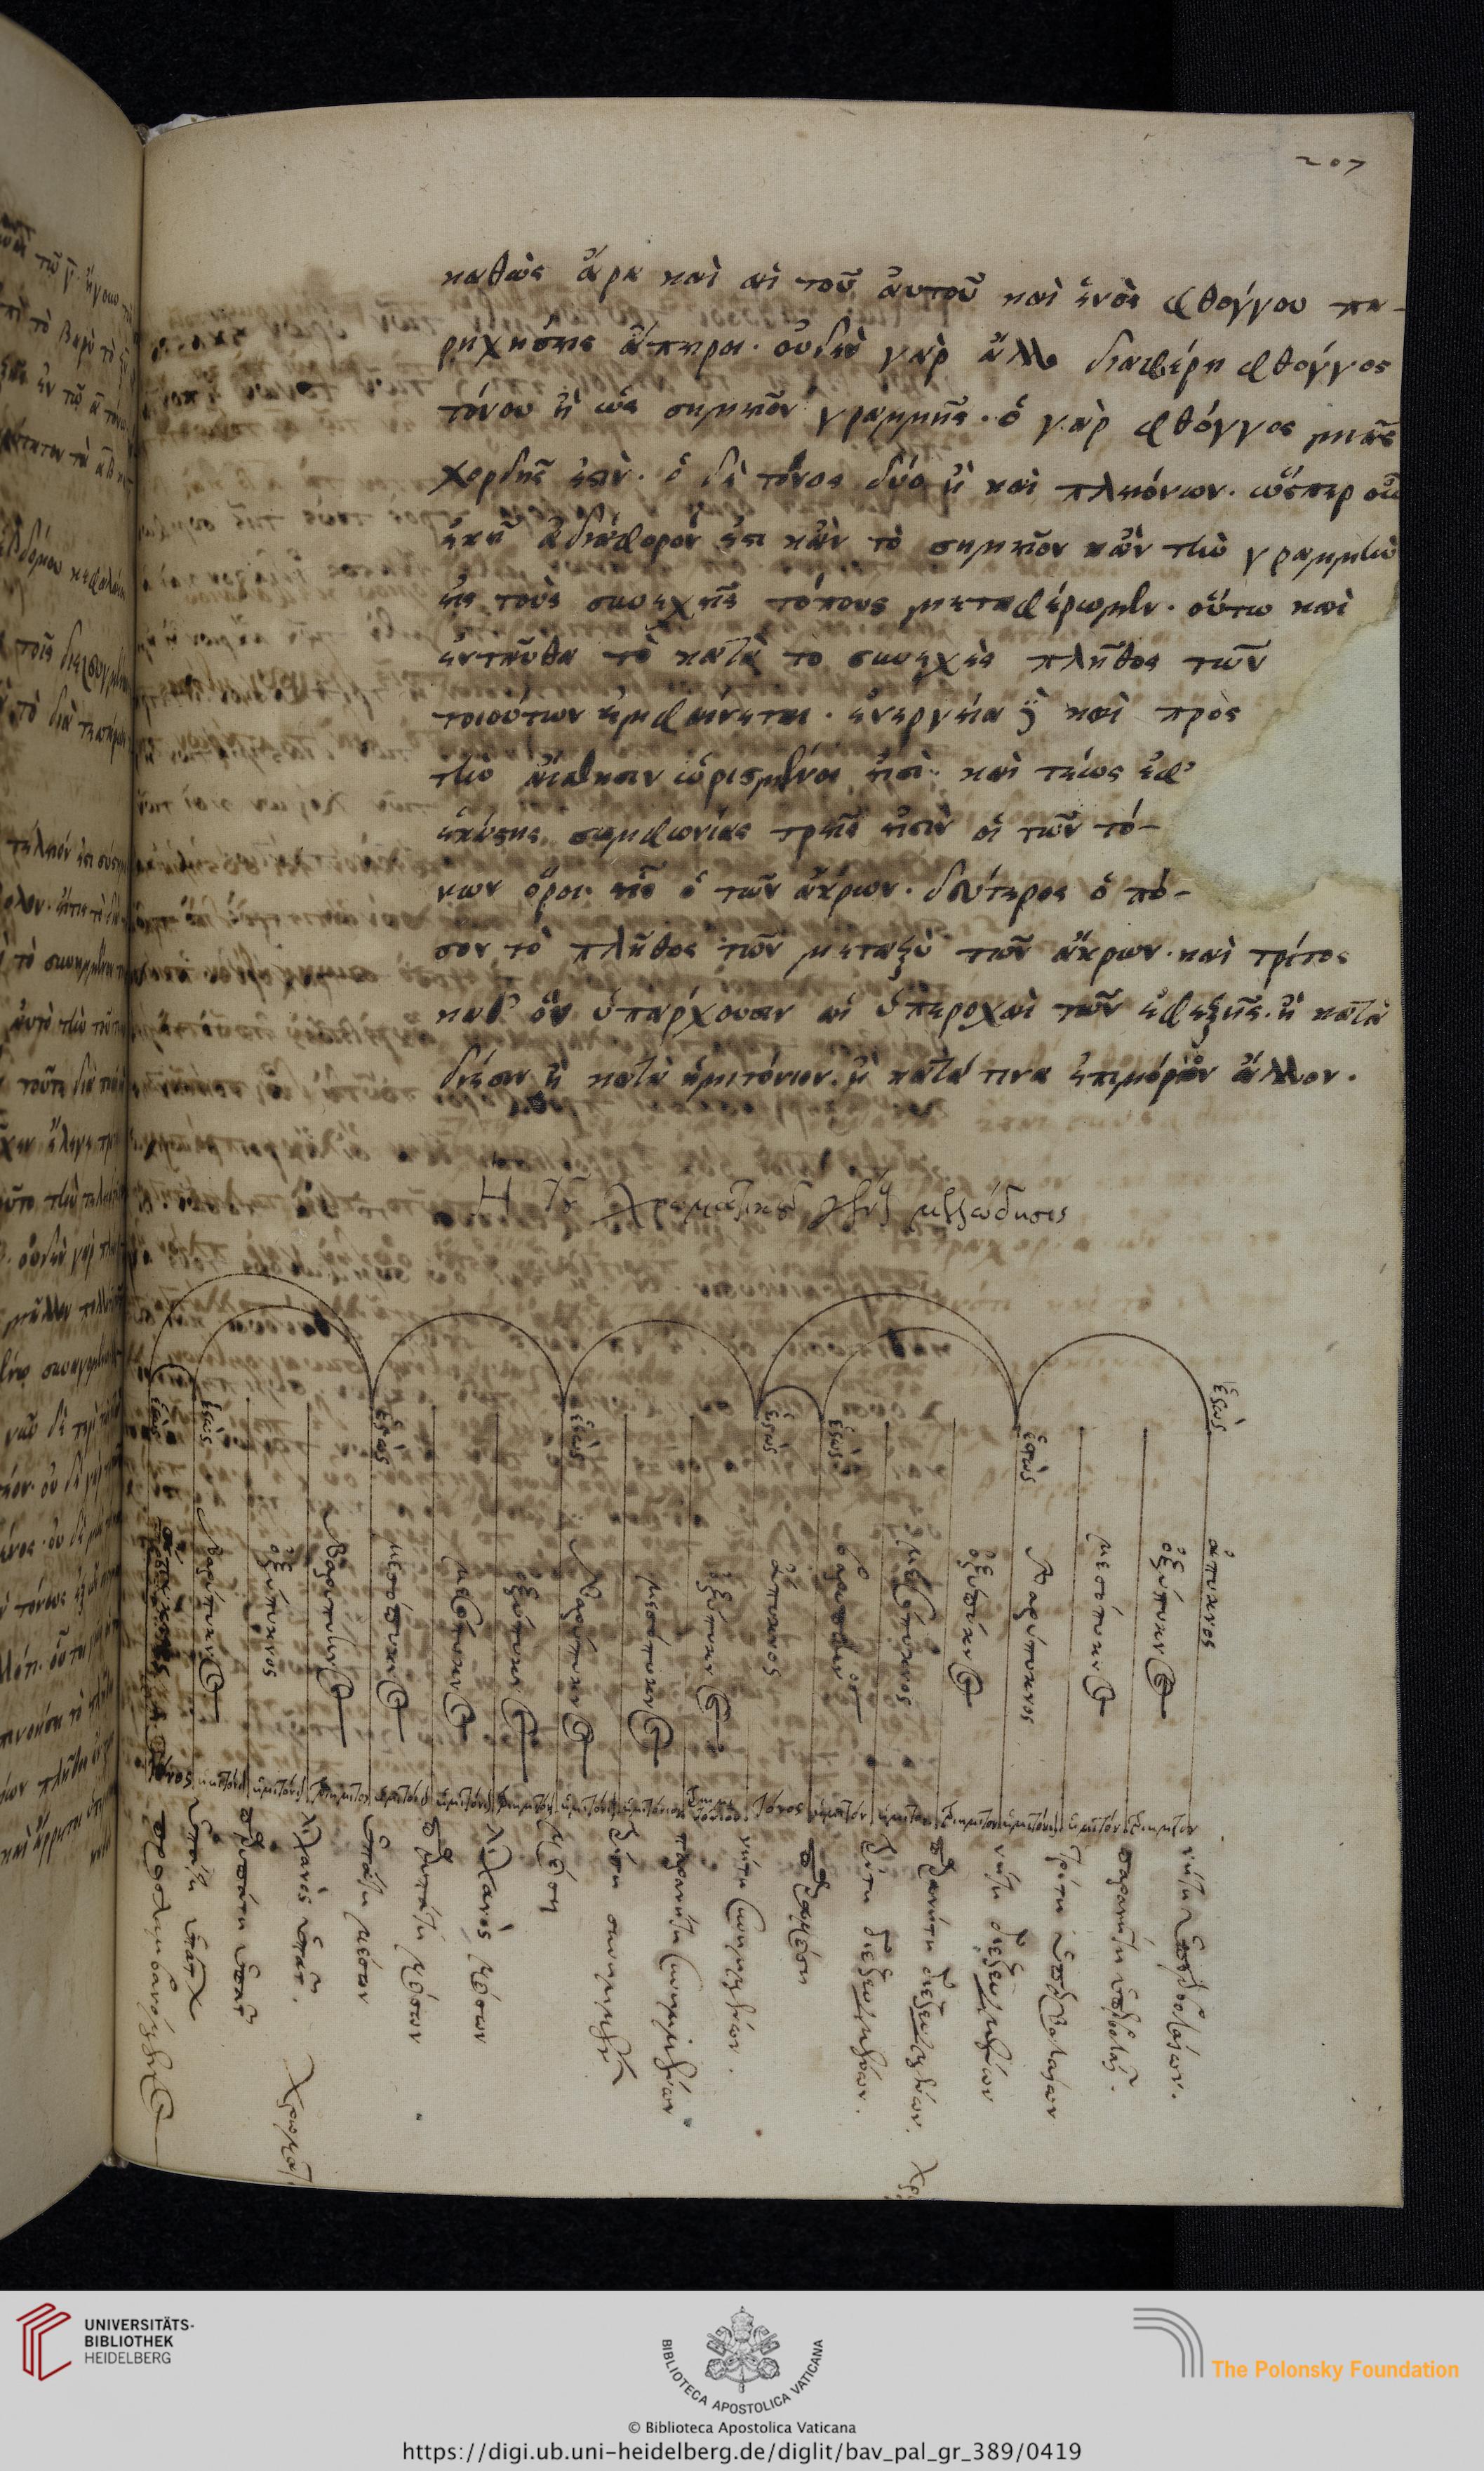 207
καθὼς ἄρα καὶ αἱ τοῦ αὐτοῦ καὶ ἑνὸς φθόγγου πα-
ρηχήσεις ἄπειροι· οὐδὲν γὰρ ἄλλο διαφέρει φθόγγος
τόνου ἢ ὡς σημεῖον γραμμῆς· ὁ γὰρ φθόγγος μιᾶς
χορδῆς ἐστὶν· ὁ δὲ τόνος δύο ἢ καὶ πλειόνων· ὥσπερ οὖν
ἐκεῖ ἀδιάφορόν ἐστι κἂν τὸ σημεῖον κἂν τὴν γραμμὴν
εἰς τοὺς συνεχεῖς τόπους μεταφέρωμεν· οὕτω καὶ
ἐνταῦθα τὸ κατὰ τὸ συνεχὲς πλῆθος τῶν
τοιούτων ἐμφαίνεται· ἐνεργείᾳ καὶ πρὸς
τὴν αἴσθησιν ὡρισμένοι εἰσὶ· καὶ τέως ἐφ'
ἑκάστης συμφωνίας τρεῖς εἰσὶν οἱ τῶν τό-
νων ὅροι· εἷς ὁ τῶν ἄκρων· δεύτερος ὁ πό-
σον τὸ πλῆθος τῶν μεταξὺ τῶν ἄκρων· καὶ τρίτος
καθ' ὃν ὑπάρχουσιν αἱ ὑπεροχαὶ τῶν ἐφεξῆς· ἢ κατὰ
δίεσιν ἢ κατὰ ἡμιτόνιον· ἢ κατά τινα ἐπιμόριον ἄλλον.
Ἡ τοῦ χρωματικοῦ γένους μελώδησις
ἑστὼς ἑστὼς ἑστὼς ἑστὼς ἑστὼς ἑστὼς ἑστὼς ἑστὼς
βαρύπυκνος ὀξύπυκνος βαρύπυκνος μεσόπυκνος μεσόπυκνος ὀξύπυκνος βαρύπυκνος μεσόπυκνος ὀξύπυκνος ἄπυκνος βαρύπυκνος μεσόπυκνος ὀξύπυκνος βαρύπυκνος μεσόπυκνος ὀξύπυκνος ἄπυκνος
τόνος ἡμιτόνιον ἡμιτόνιον τριημιτον ἡμιτόνιον ἡμιτόνιον τριημιτον ἡμιτόνιον ἡμιτόνιον τριημιτόνιον τόνος ἡμιτόν ἡμιτον τριημιτον ἡμιτόνιον ἡμιτόν τριημιτον
προσλαμβανόμενος
ὑπάτη ὑπάτων
παρυπάτη ὑπάτων
λιχανὸς ὑπάτων
ὑπάτη μέσων
παρυπάτη μέσων
λιχανὸς μέσων
μέση
τρίτη συνημμένων
παρανήτη συνημμένων
νήτη συνημμένων
παραμέση
τρίτη διεζευγμένων
παρανήτη διεζευγμένων
νήτη διεζευγμένων
τρίτη ὑπερβολαίων
παρανήτη ὑπερβολαίων
νήτη ὑπερβολαίων
χρωματ
χρ
UNIVERSITÄTS-
BIBLIOTHEK
HEIDELBERG
BIBLIOTECA APOSTOLICA VATICANA
The Polonsky Foundation
© Biblioteca Apostolica Vaticana
https://digi.ub.uni-heidelberg.de/diglit/bav_pal_gr_389/0419